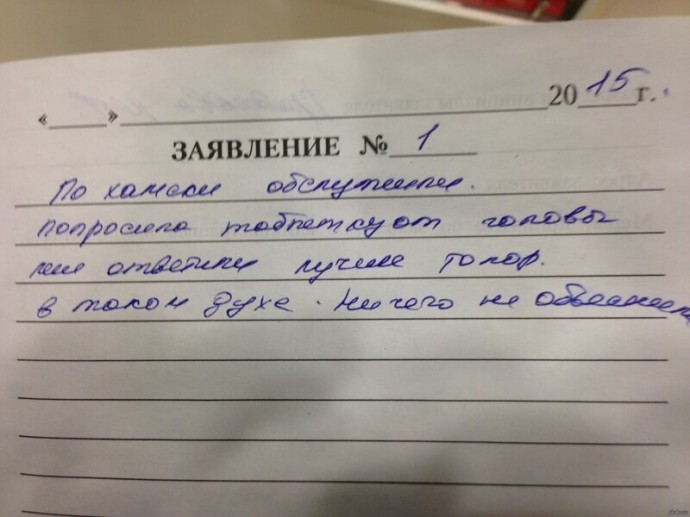 « » 20 15 г.
ЗАЯВЛЕНИЕ № 1
По хамски обслужили.
попросила таблетку от головы
мне ответили лучше топор.
в таком духе. Ничего не объяснили